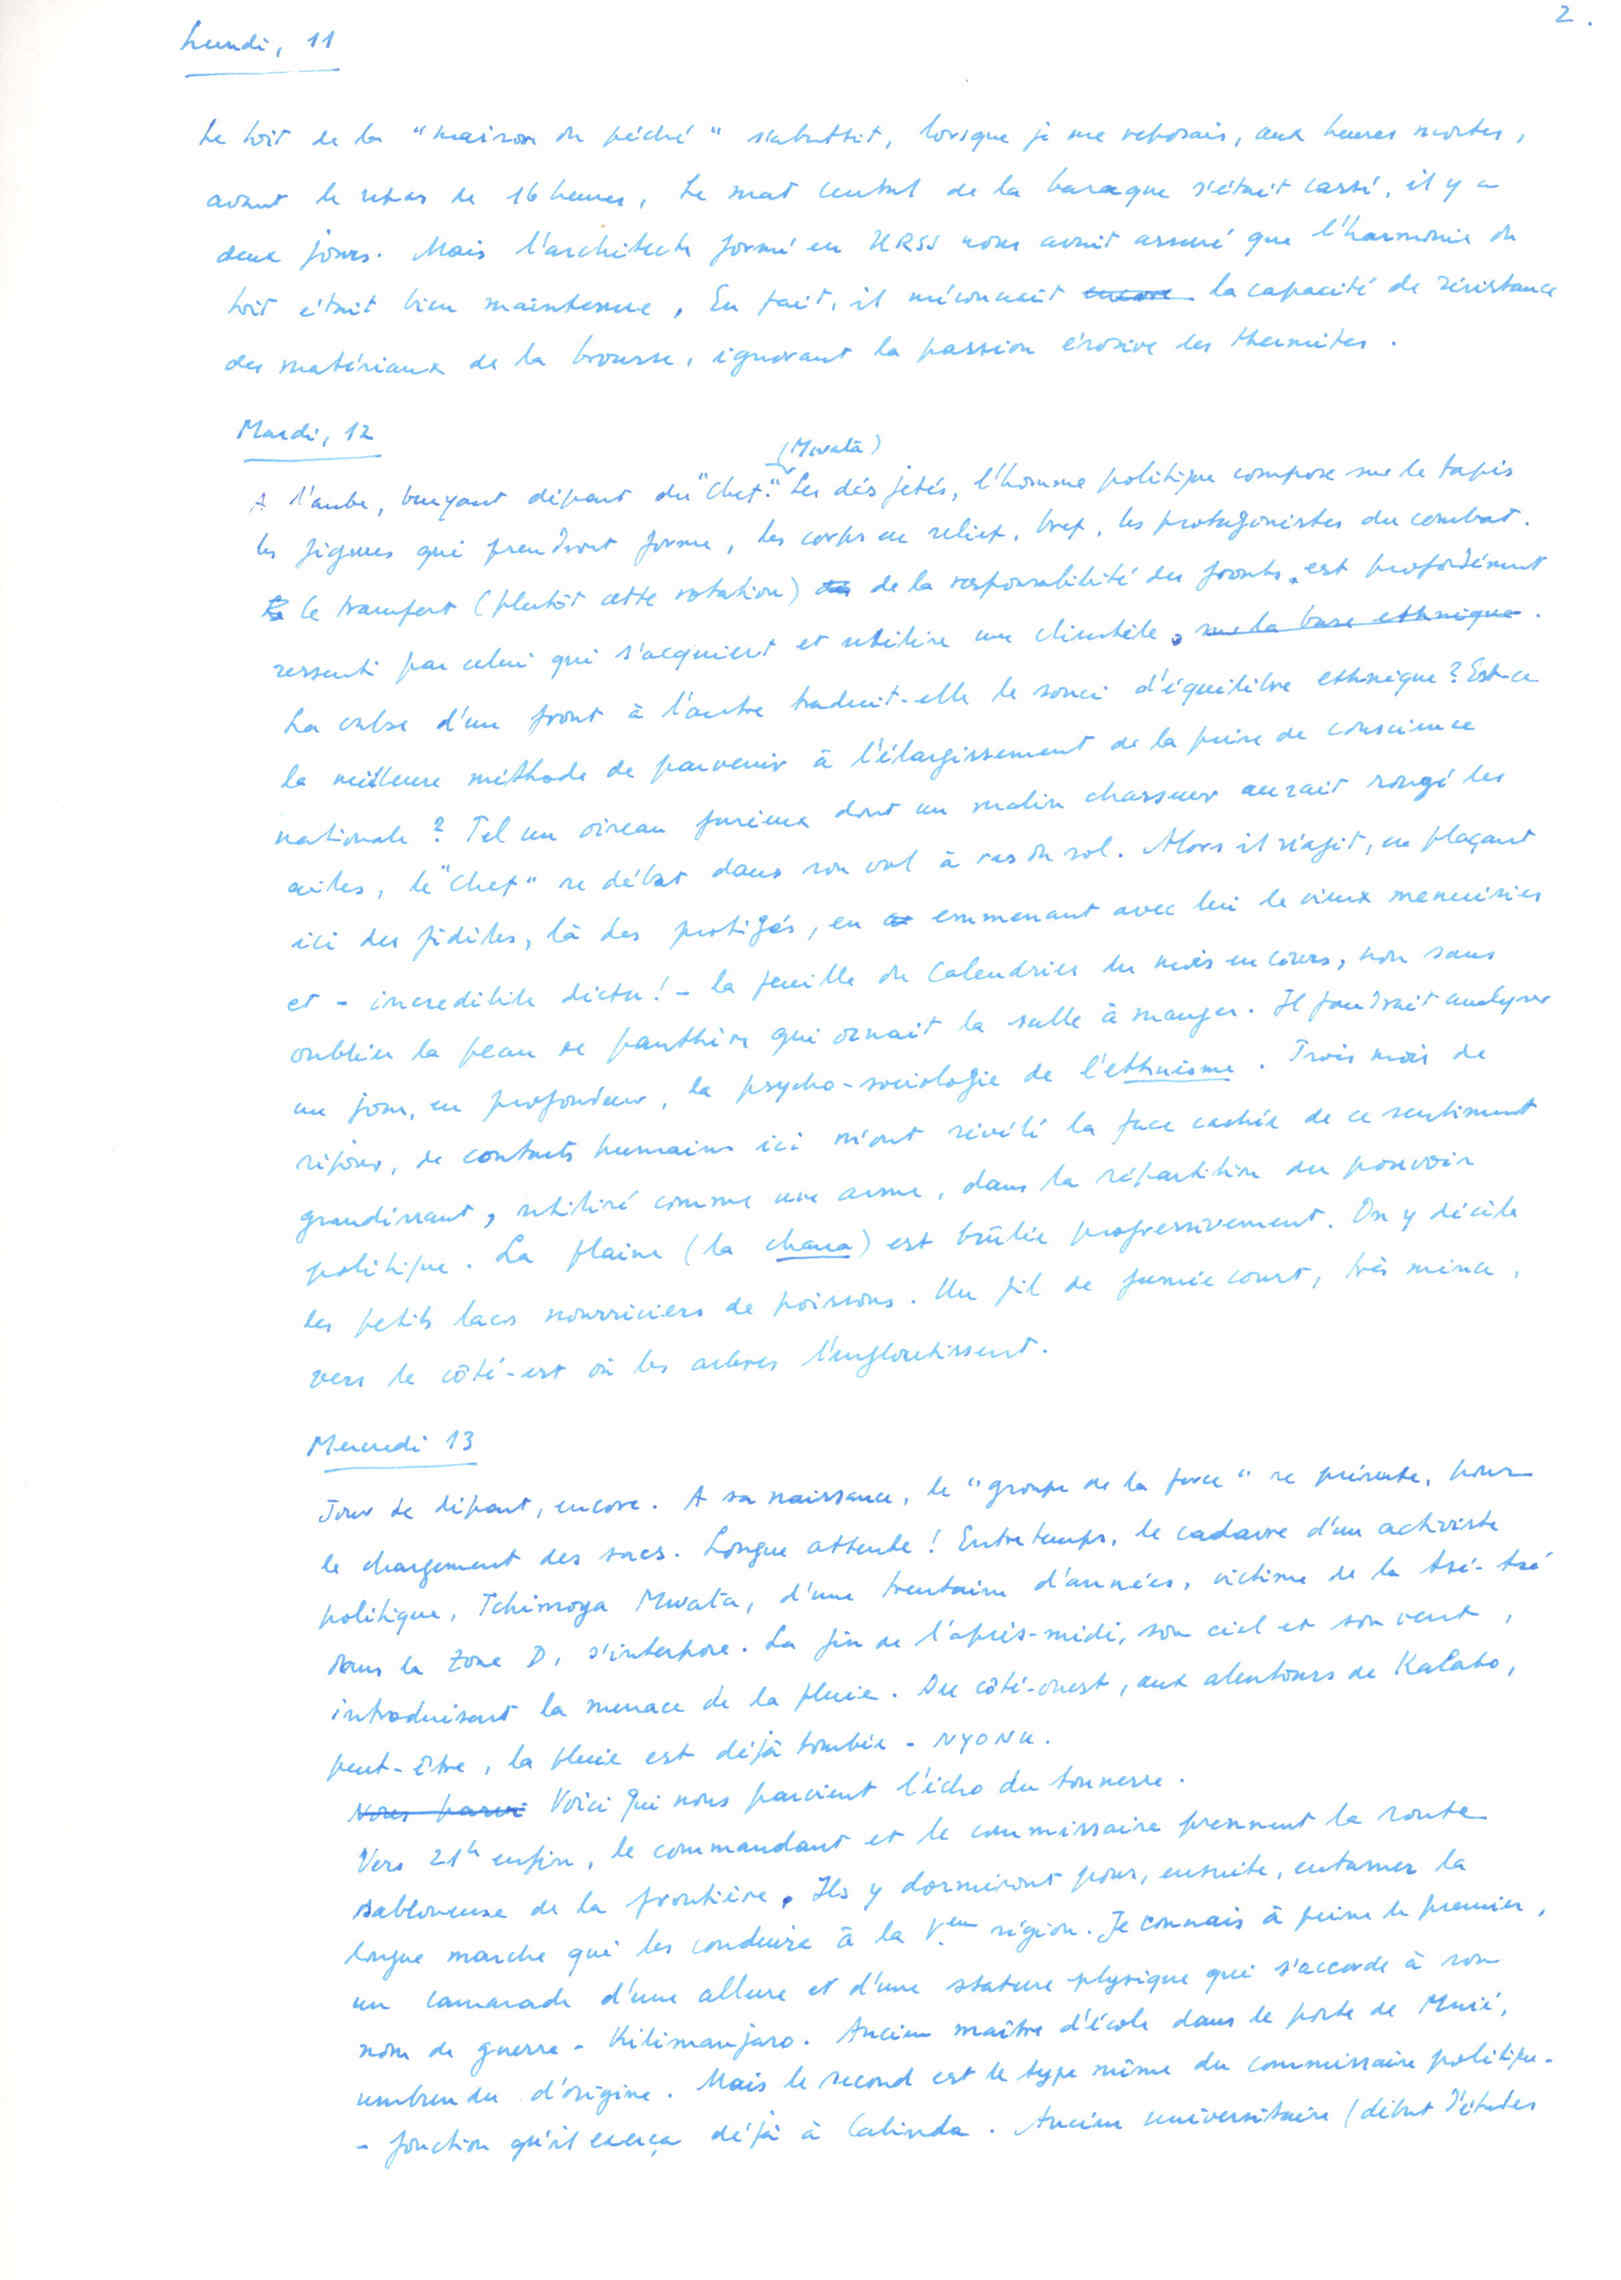 2.
Lundi, 11
Le toit de la "maison du péché" s'abattit, lorsque je me reposais, aux heures mortes,
avant le repas de 16 heures, Le mat central de la baraque s'était cassé, il y a
deux jours. Mais l'architecte formé en URSS nous avait assuré que l'harmonie du
toit était bien maintenue, En fait, il méconnait encore la capacité de résistance
des matériaux de la brousse, ignorant la passion érosive des thermites.
Mardi, 12
(Mwatá)
A l'aube, bruyant départ du "Chef." Les dés jetés, l'homme politique compose sur le tapis
les figures qui prendront forme, les corps en relief, bref, les protagonistes du combat.
le transfert (plutôt cette rotation) de la responsabilité des fronts est profondément
ressenti par celui qui s'acquiert et utilise une clientèle, sur la base ethnique.
La valse d'un front à l'autre traduit-elle le souci d'équilibre ethnique? Est-ce
la meilleure méthode de parvenir à l'élargissement de la prise de conscience
nationale? Tel un oiseau furieux dont un malin chasseur aurait rongé les
ailes, le "Chef" se débat dans son vol à ras du sol. Alors il réagit, en plaçant
ici des fidèles, là des protégés, en emmenant avec lui le vieux menuisier
et - incredibile dictu! - la feuille du Calendrier du mois en cours, non sans
oublier la peau de panthère qui ornait la salle à manger. Il faudrait analyser
un jour, en profondeur, la psycho-sociologie de l'ethnisme. Trois mois de
séjour, de contacts humains ici m'ont révélé la face cachée de ce sentiment
grandissant, utilisé comme une arme, dans la répartition du pouvoir
politique. La plaine (la chana) est brûlée progressivement. On y décèle
les petits lacs nourriciers de poissons. Un fil de fumée court, très mince,
vers le côté-est où les arbres l'engloutissent.
Mercredi 13
Jour de départ, encore. A sa naissance, le "groupe de la force" se présente, pour
le chargement des sacs. Longue attente! Entretemps, le cadavre d'un activiste
politique, Tchimoya Mwata, d'une trentaine d'années, victime de la tsé-tsé
dans la Zone D, s'interpose. La fin de l'après-midi, son ciel et son vent,
introduisent la menace de la pluie. Du côté-ouest, aux alentours de Kalabo,
peut-être, la pluie est déjà tombée - NYONU.
Nous parvi Voici qui nous parvient l'écho du tonnerre.
Vers 21h enfin, le commandant et le commissaire prennent la route
sabloneuse de la frontière. Ils y dormiront pour, ensuite, entamer la
longue marche qui les conduira à la Vem région. Je connais à peine le premier,
un camarade d'une allure et d'une stature physique qui s'accorde à son
nom de guerre - Kilimanjaro. Ancien maître d'école dans le poste de Muié,
umbundu d'origine. Mais le second est le type même du commissaire politique -
- fonction qu'il exerça déjà à Cabinda. Ancien universitaire (début d'études